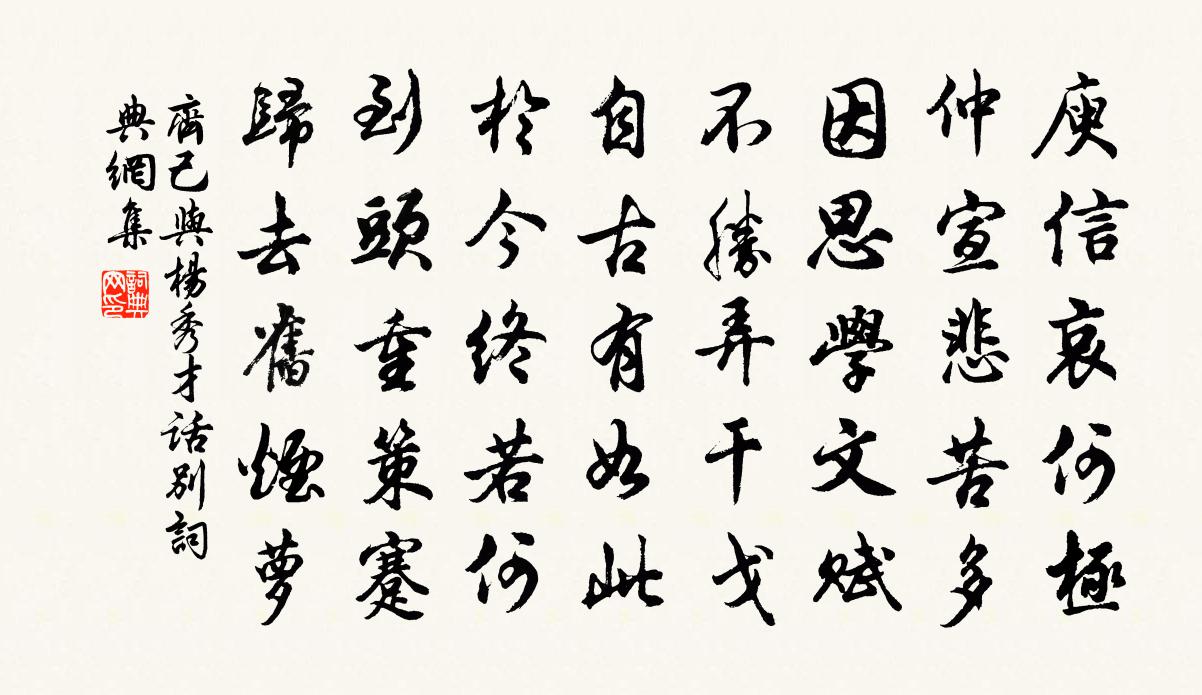 庾信哀何極
仲宣悲苦多
因思學文賦
不勝弄干戈
自古有如此
於今終若何
到頭重策蹇
歸去舊煙蘿
齊己與楊秀才話別詞
典網集
詞典
网印